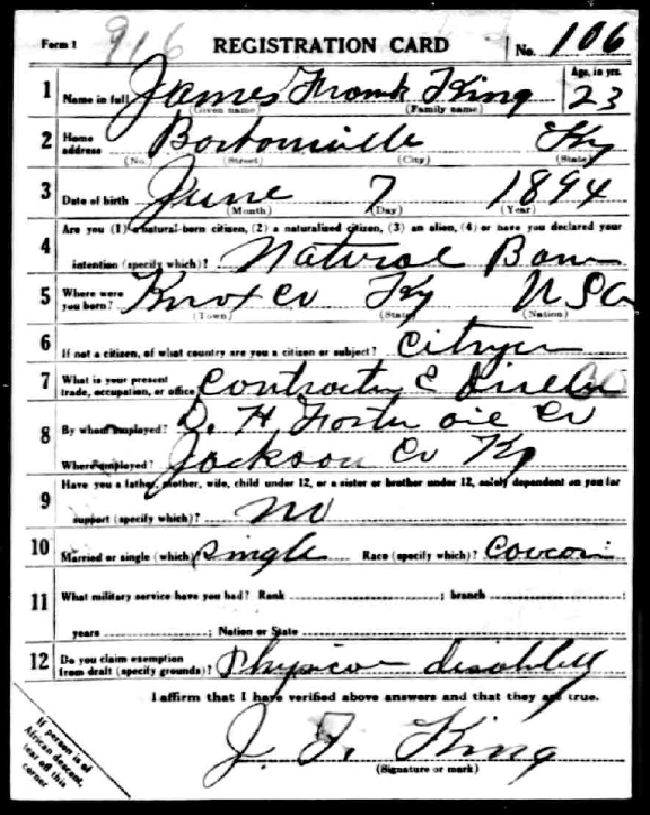 Form 1 916 REGISTRATION CARD No. 106
1 Name in full James Frank King Age, in yrs. 23
(Given name) (Family name)
2 Home address Barbourville Ky
(No.) (Street) (City) (State)
3 Date of birth June 7 1894
(Month) (Day) (Year)
4 Are you (1) a natural-born citizen, (2) a naturalized citizen, (3) an alien, (4) or have you declared your
intention (specify which)? Natural Born
5 Where were you born? Knox Co Ky USA
(Town) (State) (Nation)
6 If not a citizen, of what country are you a citizen or subject? Citizen
7 What is your present trade, occupation, or office? Contractor &
8 By whom employed? D. H. Foster oil Co
Where employed? Jackson Co Ky
9 Have you a father, mother, wife, child under 12, or a sister or brother under 12, solely dependent on you for
support (specify which)? no
10 Married or single (which)? Single Race (specify which)?
11 What military service have you had? Rank ; branch ;
years ; Nation or State
12 Do you claim exemption from draft (specify grounds)? Physical disability
I affirm that I have verified above answers and that they are true.
J. F. King
(Signature or mark)
If person is of
African descent,
tear off this
corner